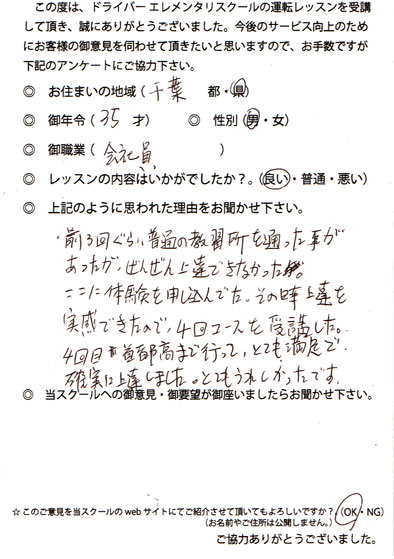 この度は、ドライバー エレメンタリスクールの運転レッスンを受講
して頂き、誠にありがとうございました。今後のサービス向上のため
にお客様の御意見を伺わせて頂きたいと思いますので、お手数ですが
下記のアンケートにご協力下さい。
◎ お住まいの地域(千葉 都・県)
◎ 御年令(35 才) ◎ 性別(男・女)
◎ 御職業(会社員 )
◎ レッスンの内容はいかがでしたか?。(良い・普通・悪い)
◎ 上記のように思われた理由をお聞かせ下さい。
前3回ぐらい普通の教習所を通った事が
あったが、ぜんぜん上達できなかった。
ここに体験を申し込んでた。その時上達を
実感できたので、4回コースを受講した。
4回目は首都高まで行って、とても満足で
確実に上達しました。とてもうれしかったです。
◎ 当スクールへの御意見・御要望が御座いましたらお聞かせ下さい。
☆このご意見を当スクールのwebサイトにてご紹介させて頂いてもよろしいですか?(OK・NG)
(お名前やご住所は公開しません。)
ご協力ありがとうございました。